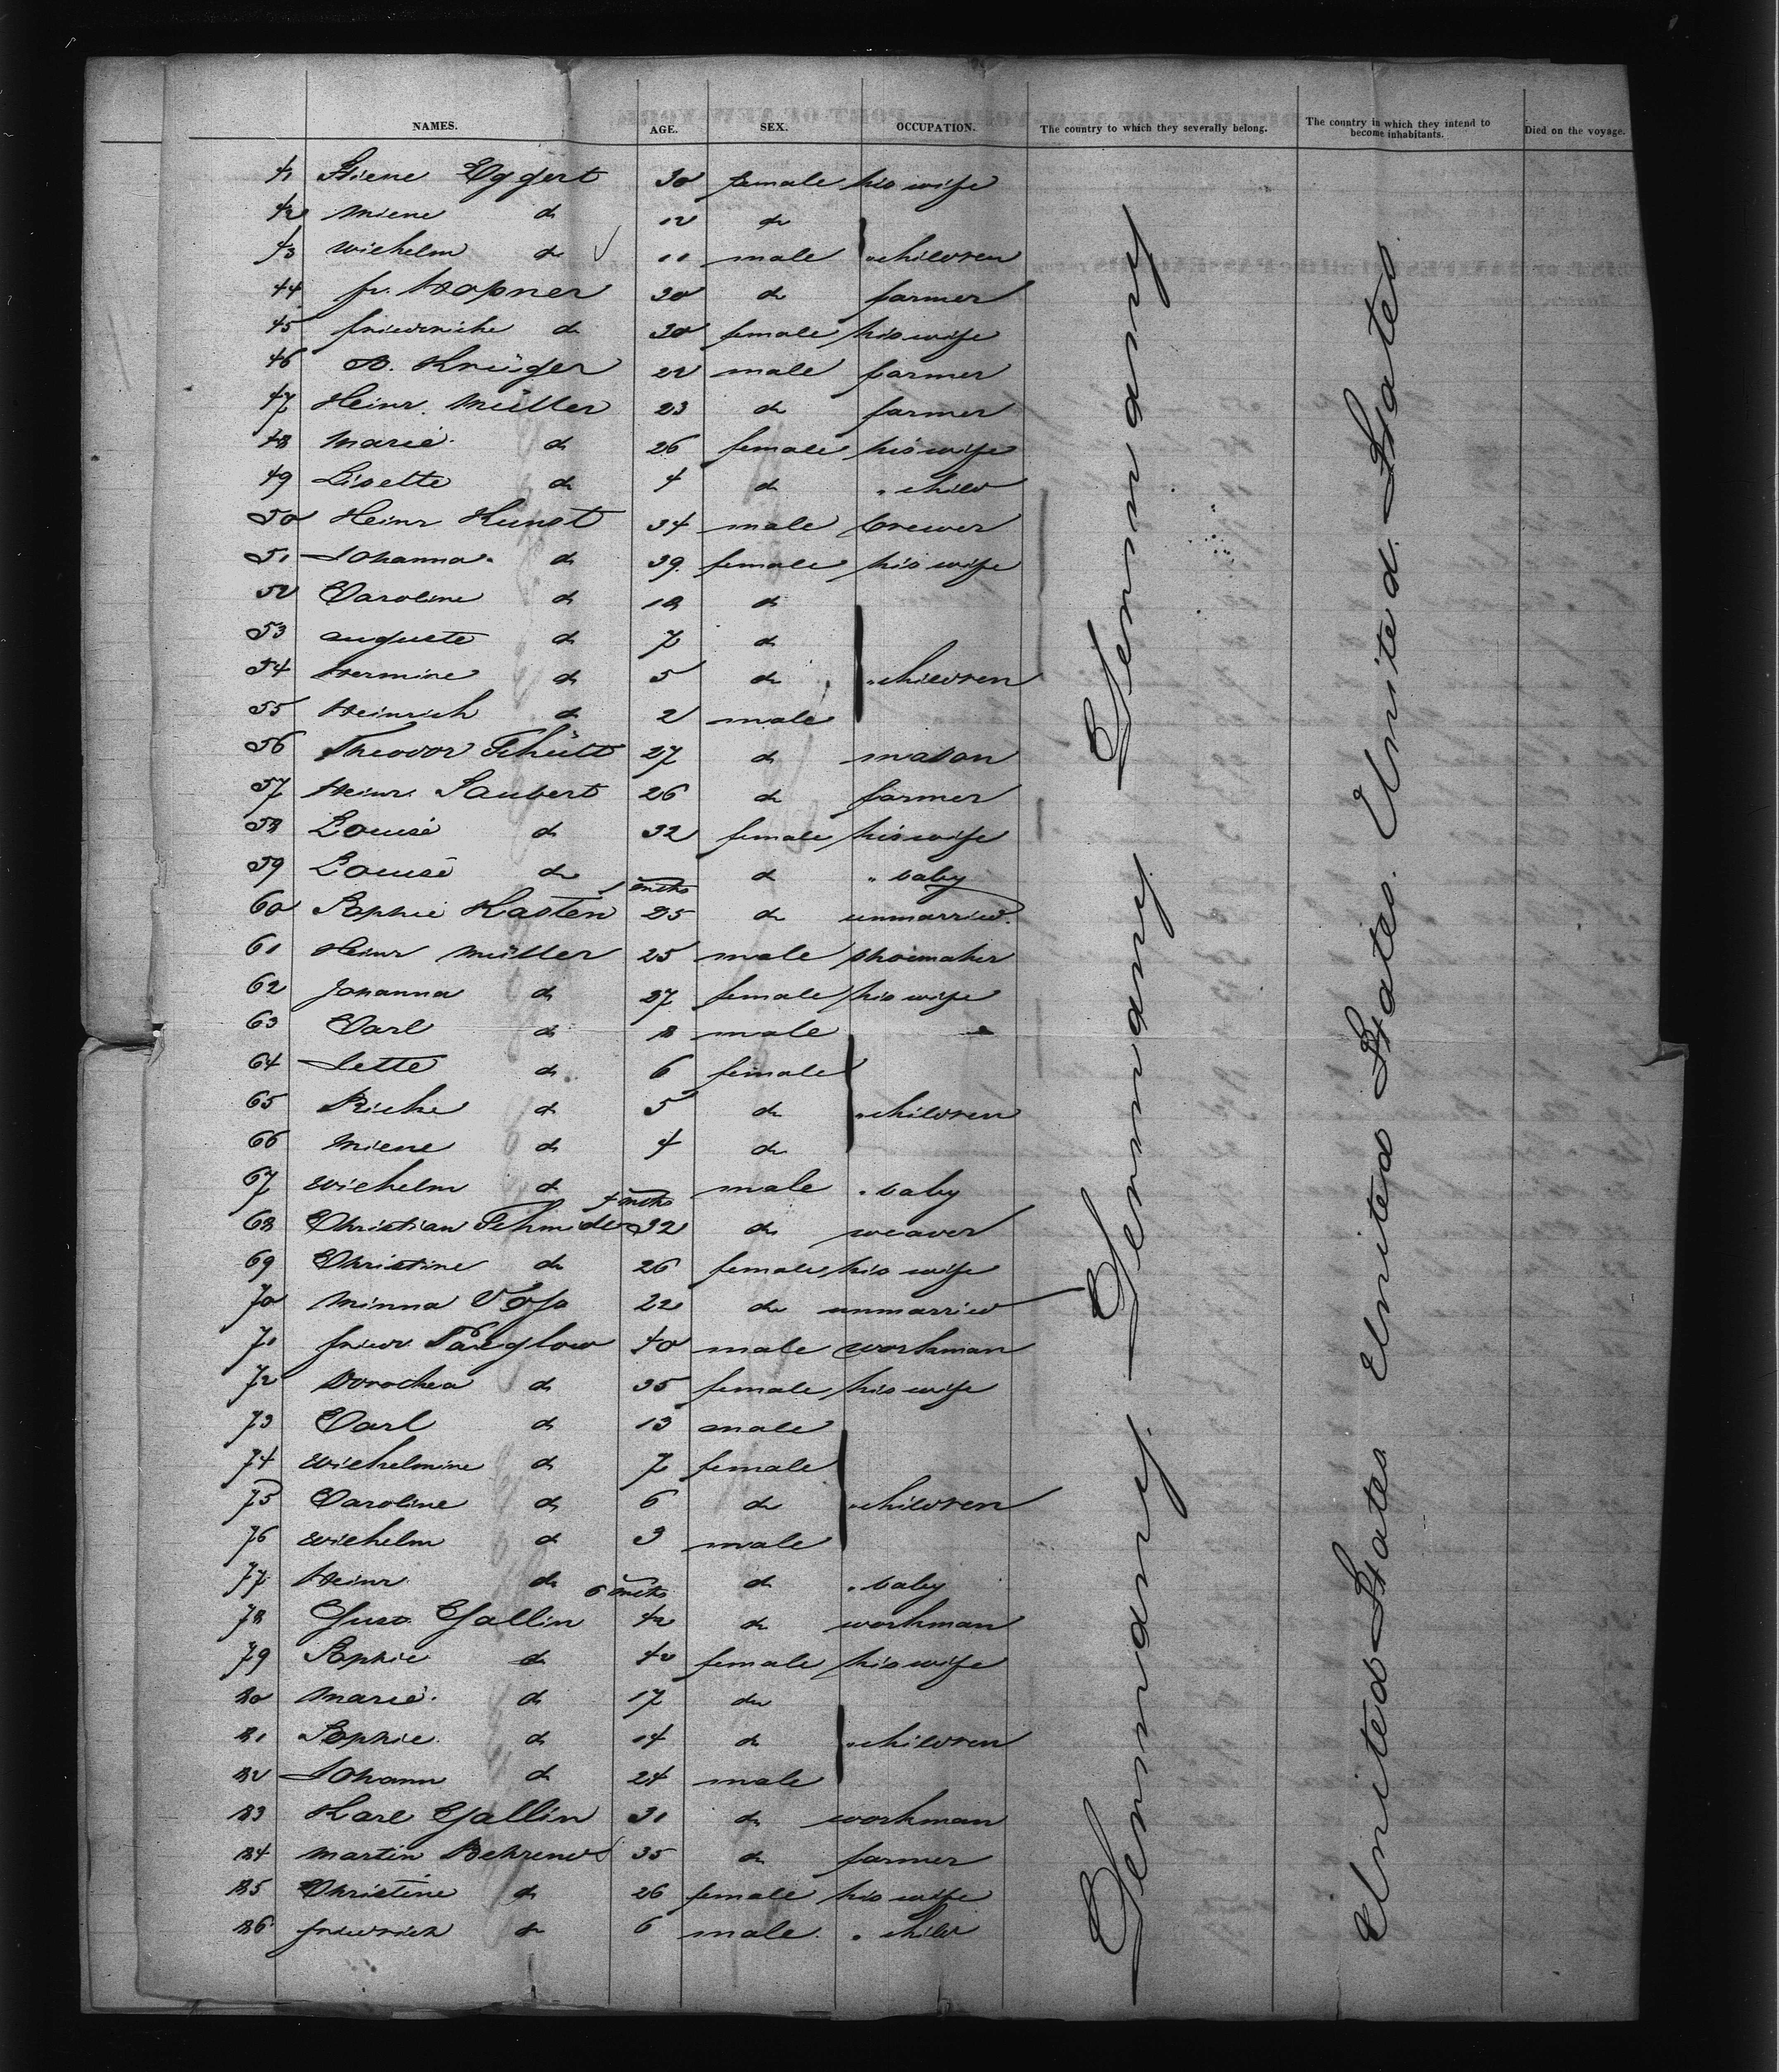 NAMES. AGE. SEX. OCCUPATION. The country to which they severally belong. The country in which they intend to become inhabitants. Died on the voyage.
41 Stiene Eggert 30 female his wife
42 Miene do 12 do
43 Wilhelm do 11 male " children
44 fr. Hopner 30 do farmer
45 friedericke do 30 female his wife
46 Krüger 22 male farmer
47 Heinr. Müller 23 do farmer
48 Marie do 26 female his wife
49 Lisette do 4 do " child
50 Heinr Kunst 34 male brewer
51 Johanna do 39. female his wife
52 Caroline do do
53 auguste do 7 do
54 Hermine do 5 do " children
55 Heinrich do 2 male
56 Theodor Schütt 27 do mason
57 Heinr. Saubert 26 do farmer
58 Louise do 32 female his wife
59 Louise do mths do " baby
60 Sophie Kasten 25 do unmarried.
61 Heinr Müller 25 male shoemaker
62 Johanna do 27 female his wife
63 Carl do 8 male
64 Jette do 6 female
65 Rieke do 5 do " children
66 Miene do 4 do
67 Wilhelm do 4 mths male " baby
68 Christian Schmider 32 do weaver
69 Christine do 26 female his wife
70 Minna Voss 22 do unmarried
71 friedr Panglow 40 male workman
72 Dorothea do 35 female his wife
73 Carl do 13 male
74 Wilhelmine do 7 female
75 Caroline do 6 do " children
76 Wilhelm do 3 male
77 Heinr. do 6 mths do " baby
78 Gust. Gallin 42 do workman
79 Sophie do 42 female his wife
80 Marie do 17 do
81 Sophie do 14 do " children
82 Johann do 24 male
83 Karl Gallin 31 do workman
84 Martin Behrend 35 do farmer
85 Christine do 26 female his wife
86 friedrich do 6 male. " child
Germany. Germany. Germany. Germany
United States United States. United States.